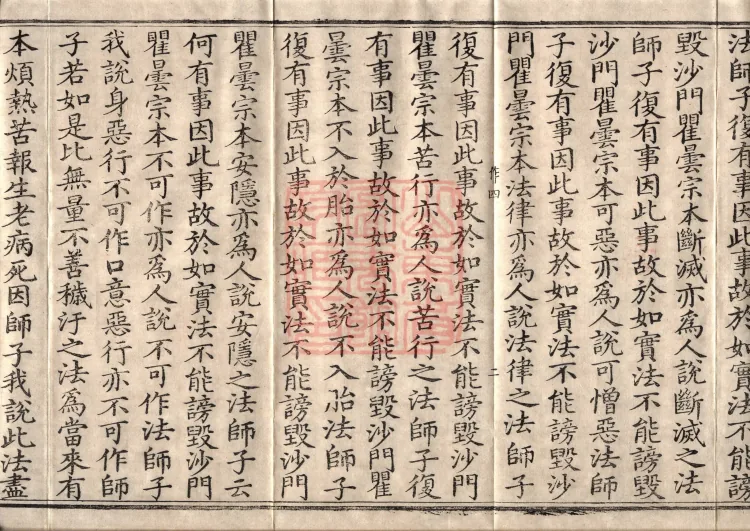 法師子復有事因此事故於如實法不能謗
毀沙門瞿曇宗本斷滅亦爲人說斷滅之法
師子復有事因此事故於如實法不能謗毀
沙門瞿曇宗本可惡亦爲人說可憎惡法師
子復有事因此事故於如實法不能謗毀沙
門瞿曇宗本法律亦爲人說法律之法師子
作四
二
復有事因此事故於如實法不能謗毀沙門
瞿曇宗本苦行亦爲人說苦行之法師子復
有事因此事故於如實法不能謗毀沙門瞿
曇宗本不入於胎亦爲人說不入胎法師子
復有事因此事故於如實法不能謗毀沙門
瞿曇宗本安隱亦爲人說安隱之法師子云
何有事因此事故於如實法不能謗毀沙門
瞿曇宗本不可作亦爲人說不可作法師子
我說身惡行不可作口意惡行亦不可作師
子若如是比無量不善穢汙之法爲當來有
本煩熱苦報生老病死因師子我說此法盡